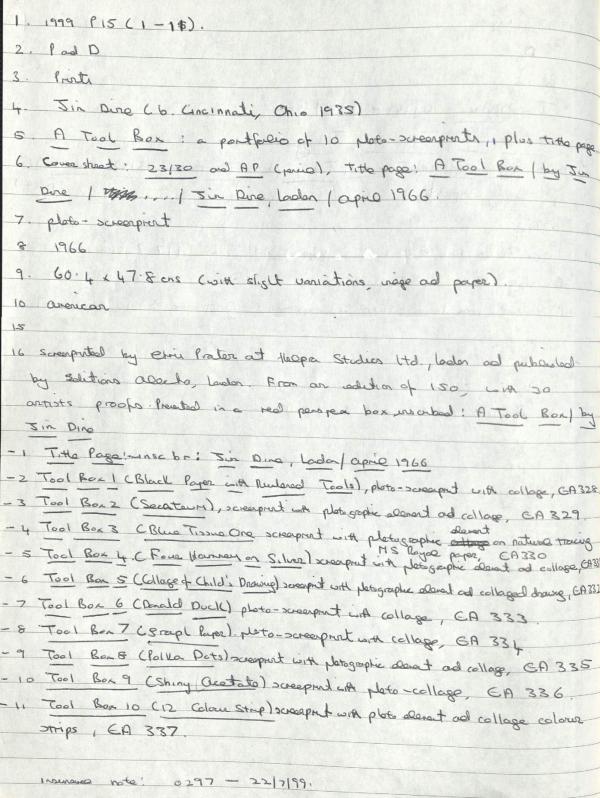 1. 1999 P15 (1-11).
2. P and D
3. Prints
4. Jim Dine (b. Cincinnati, Ohio 1935)
5. A Tool Box : a portfolio of 10 photo-screenprints, plus title page
6. Cover sheet: 23/30 and AP (pencil), Title page: A Tool Box / by Jim
Dine / ..... / Jim Dine, London / april 1966.
7. photo-screenprint
8 1966
9. 60.4 x 47.8 cms (with slight variations, image and paper).
10 american
15
16 screenprinted by Chris Prater at Kelpra Studios Ltd., London and published
by Editions Alecto, London. From an edition of 150, with 30
artists proofs. Presented in a red perspex box inscribed: A Tool Box / by
Jim Dine
-1 Title Page: insc br: Jim Dine, London / april 1966
-2 Tool Box 1 (Black Paper with Numbered Tools), photo-screenprint with collage, EA328
-3 Tool Box 2 (Secateurs), screenprint with photographic element and collage, EA 329.
-4 Tool Box 3 (Blue Tissue One screenprint with photographic element on nature tracing
-5 Tool Box 4. (Four Hammers on Silver) screenprint with photographic element and
MS Royal paper, EA330
-6 Tool Box 5 (Collage of Child's Drawing) screenprint with photographic element and collaged drawing,
-7 Tool Box 6 (Donald Duck) photo-screenprint with collage, EA 333.
-8 Tool Box 7 (Graph Paper). photo-screenprint with collage, EA 334
-9 Tool Box 8 (Polka Dots) screenprint with photographic element and collage, EA 335
-10 Tool Box 9 (Shiny Acetate) screenprint with photo-collage, EA 336.
-11 Tool Box 10 (12 Colour Strip) screenprint with photo element and collage colour
strips, EA 337.
Insurance note: 0297 - 22/7/99.